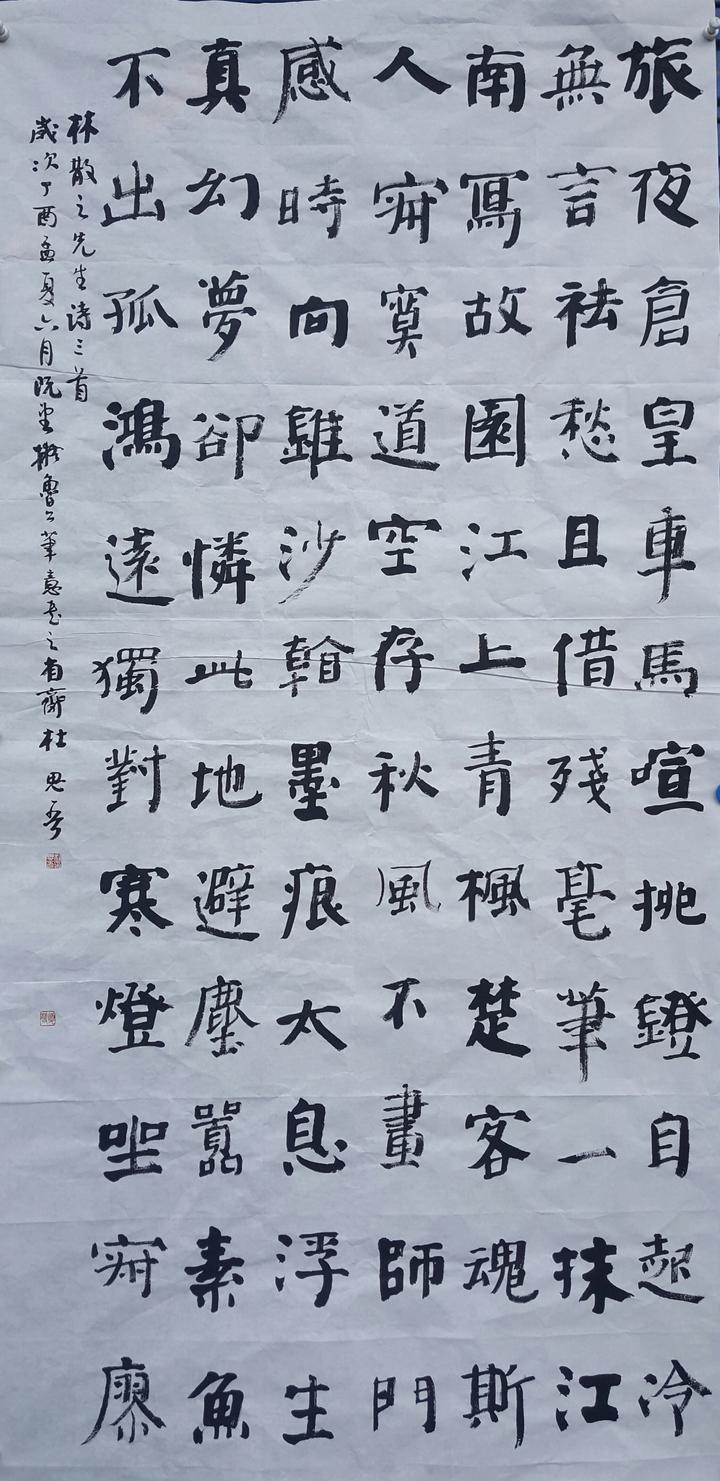 旅夜倉皇車馬喧挑鐙自起冷
無言祛愁且借殘毫筆一抹江
南寫故園江上青楓楚客魂斯
人寂寞道空存秋風不畫師門
感時向雖沙翰墨痕太息浮生
真幻夢卻憐此地避塵囂素魚
不出孤鴻遠獨對寒燈坐寂廖
林散之先生诗三首
歲次丁酉孟夏六月阮堂擬魯公筆意書之有齋杜思